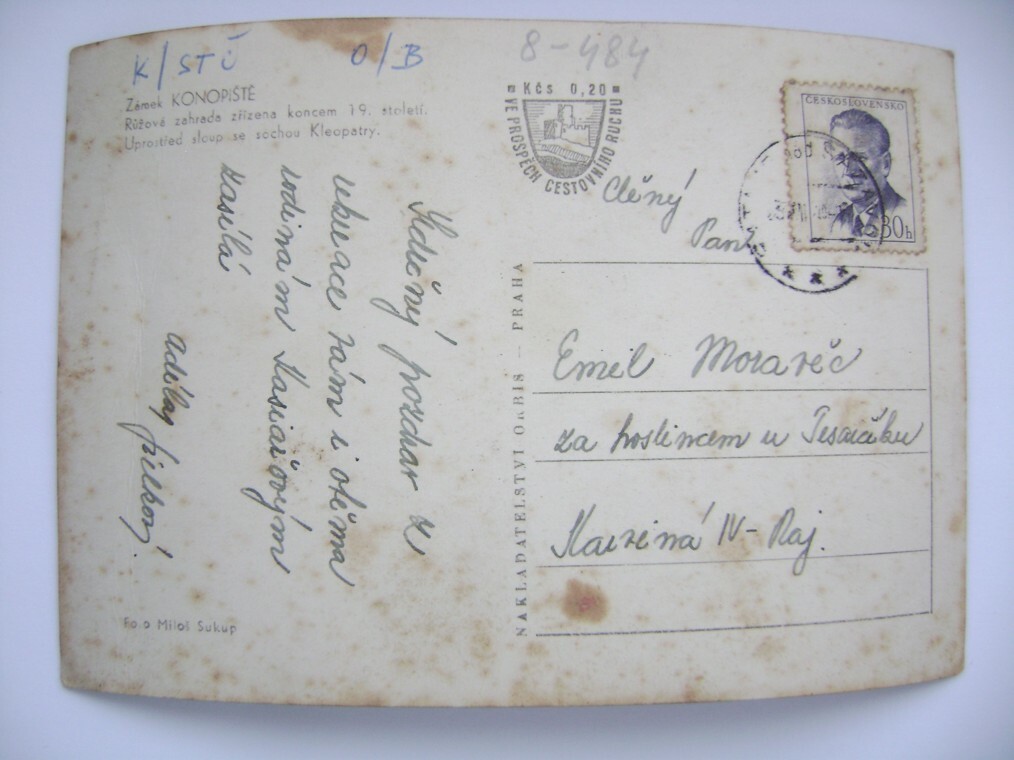 K/STŮ O/B
8-484
Zámek KONOPIŠTĚ
Růžová zahrada zřízena koncem 19. století.
Uprostřed sloup se sochou Kleopatry.
Kčs 0,20
VE PROSPĚCH CESTOVNÍHO RUCHU
ČESKOSLOVENSKO
30h
Srdečný pozdrav z
rekreace vám i oběma
rodinám
zasílá
Foto Miloš Sukup
NAKLADATELSTVÍ ORBIS — PRAHA
Ctěný
Pan
Emil Moravěč
za hostincem u Tesarčíku
Karviná IV - Raj.